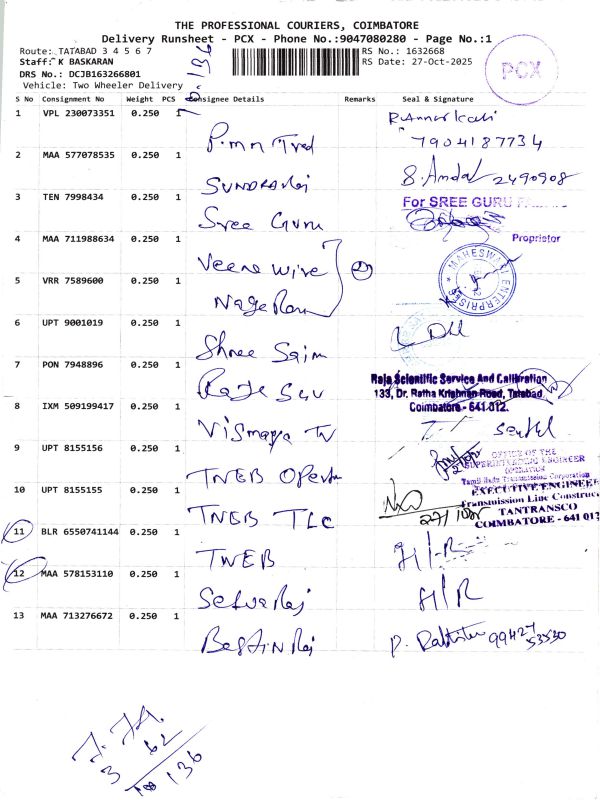 THE PROFESSIONAL COURIERS, COIMBATORE
Delivery Runsheet - PCX - Phone No.:9047080280 - Page No.:1
Route: TATABAD 3 4 5 6 7
RS No.: 1632668
Staff: K BASKARAN
RS Date: 27-Oct-2025
DRS No.: DCJB163266801
Vehicle: Two Wheeler Delivery
PCX
S No Consignment No Weight PCS Consignee Details Remarks Seal & Signature
1 VPL 230073351 0.250 1
7904187734
2 MAA 577078535 0.250 1 2490908
3 TEN 7998434 0.250 1 Sree Guru For SREE GURU
Proprietor
4 MAA 711988634 0.250 1 Veena wire MAHESWARI ENTERPRISES
5 VRR 7589600 0.250 1
6 UPT 9001019 0.250 1 Shree Saim
7 PON 7948896 0.250 1 Raja Scientific Service And Calibration
133, Dr. Ratha Krishnan Road, Tatabad
Coimbatore - 641 012.
8 IXM 509199417 0.250 1 Vismaya TV
9 UPT 8155156 0.250 1 TNEB OFFICE OF THE
SUPERINTENDING ENGINEER
OPERATION
Tamil Nadu Transmission Corporation
10 UPT 8155155 0.250 1 TNEB TLC EXECUTIVE ENGINEER
Transmission Line Construc
TANTRANSCO
COIMBATORE - 641 012
11 BLR 6550741144 0.250 1 TNEB H/R
12 MAA 578153110 0.250 1 Selva Raj H/R
13 MAA 713276672 0.250 1 99427
53530
3 62
136